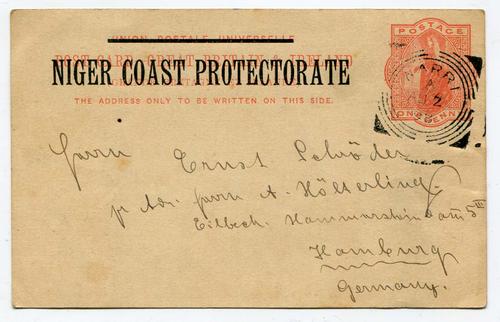 UNION POSTALE UNIVERSELLE
POST CARD GREAT BRITAIN & IRELAND
NIGER COAST PROTECTORATE
THE ADDRESS ONLY TO BE WRITTEN ON THIS SIDE.
POSTAGE
ONE PENNY
WARRI
A
98
Herrn Ernst Schröder
p Adr. Herrn A. Hölterling
Eilbeck. Hammerstein
Hamburg
Germany.